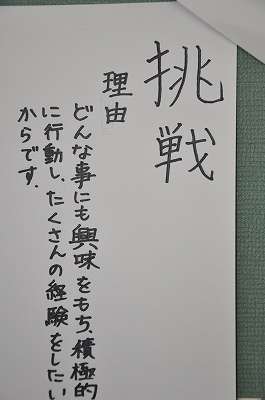 挑戦
理由
どんな事にも興味をもち、積極的
に行動し、たくさんの経験をしたい
からです.